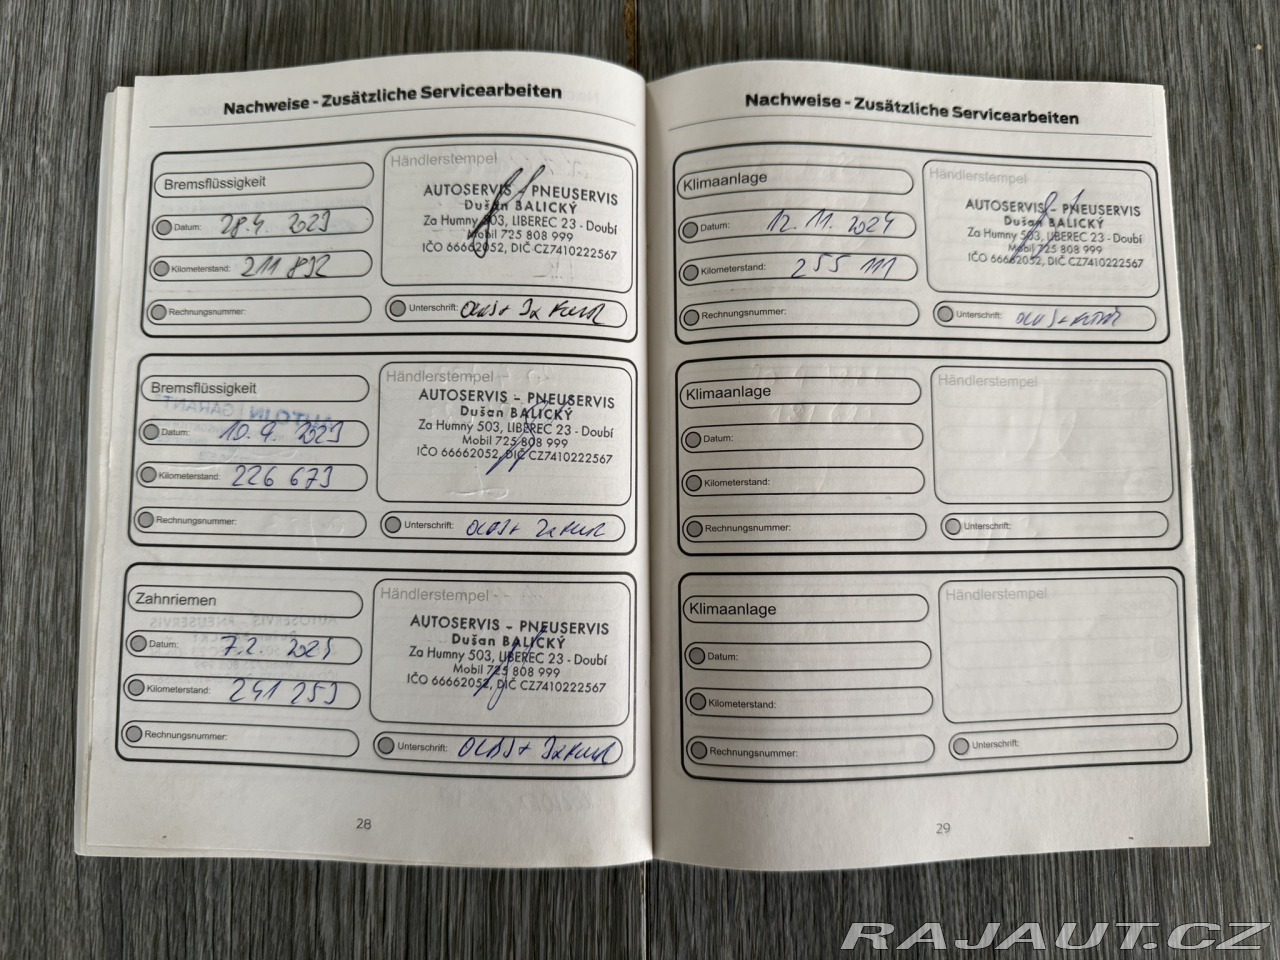 Nachweise - Zusätzliche Servicearbeiten
Bremsflüssigkeit
Datum: 28.4. 2023
Kilometerstand: 211 832
Rechnungsnummer:
Händlerstempel
AUTOSERVIS - PNEUSERVIS
Dušan BALICKÝ
Za Humny 503, LIBEREC 23 - Doubí
Mobil 725 808 999
IČO 66662052, DIČ CZ7410222567
Unterschrift:
Bremsflüssigkeit
Datum: 10.9. 2023
Kilometerstand: 226 673
Rechnungsnummer:
Händlerstempel
AUTOSERVIS - PNEUSERVIS
Dušan BALICKÝ
Za Humny 503, LIBEREC 23 - Doubí
Mobil 725 808 999
IČO 66662052, DIČ CZ7410222567
Unterschrift:
Zahnriemen
Datum: 7.2. 2024
Kilometerstand: 241 253
Rechnungsnummer:
Händlerstempel
AUTOSERVIS - PNEUSERVIS
Dušan BALICKÝ
Za Humny 503, LIBEREC 23 - Doubí
Mobil 725 808 999
IČO 66662052, DIČ CZ7410222567
Unterschrift:
28
Nachweise - Zusätzliche Servicearbeiten
Klimaanlage
Datum: 12.11. 2024
Kilometerstand: 255 111
Rechnungsnummer:
Händlerstempel
AUTOSERVIS - PNEUSERVIS
Dušan BALICKÝ
Za Humny 503, LIBEREC 23 - Doubí
Mobil 725 808 999
IČO 66662052, DIČ CZ7410222567
Unterschrift:
Klimaanlage
Datum:
Kilometerstand:
Rechnungsnummer:
Händlerstempel
Unterschrift:
Klimaanlage
Datum:
Kilometerstand:
Rechnungsnummer:
Händlerstempel
Unterschrift:
29
RAJAUT.CZ